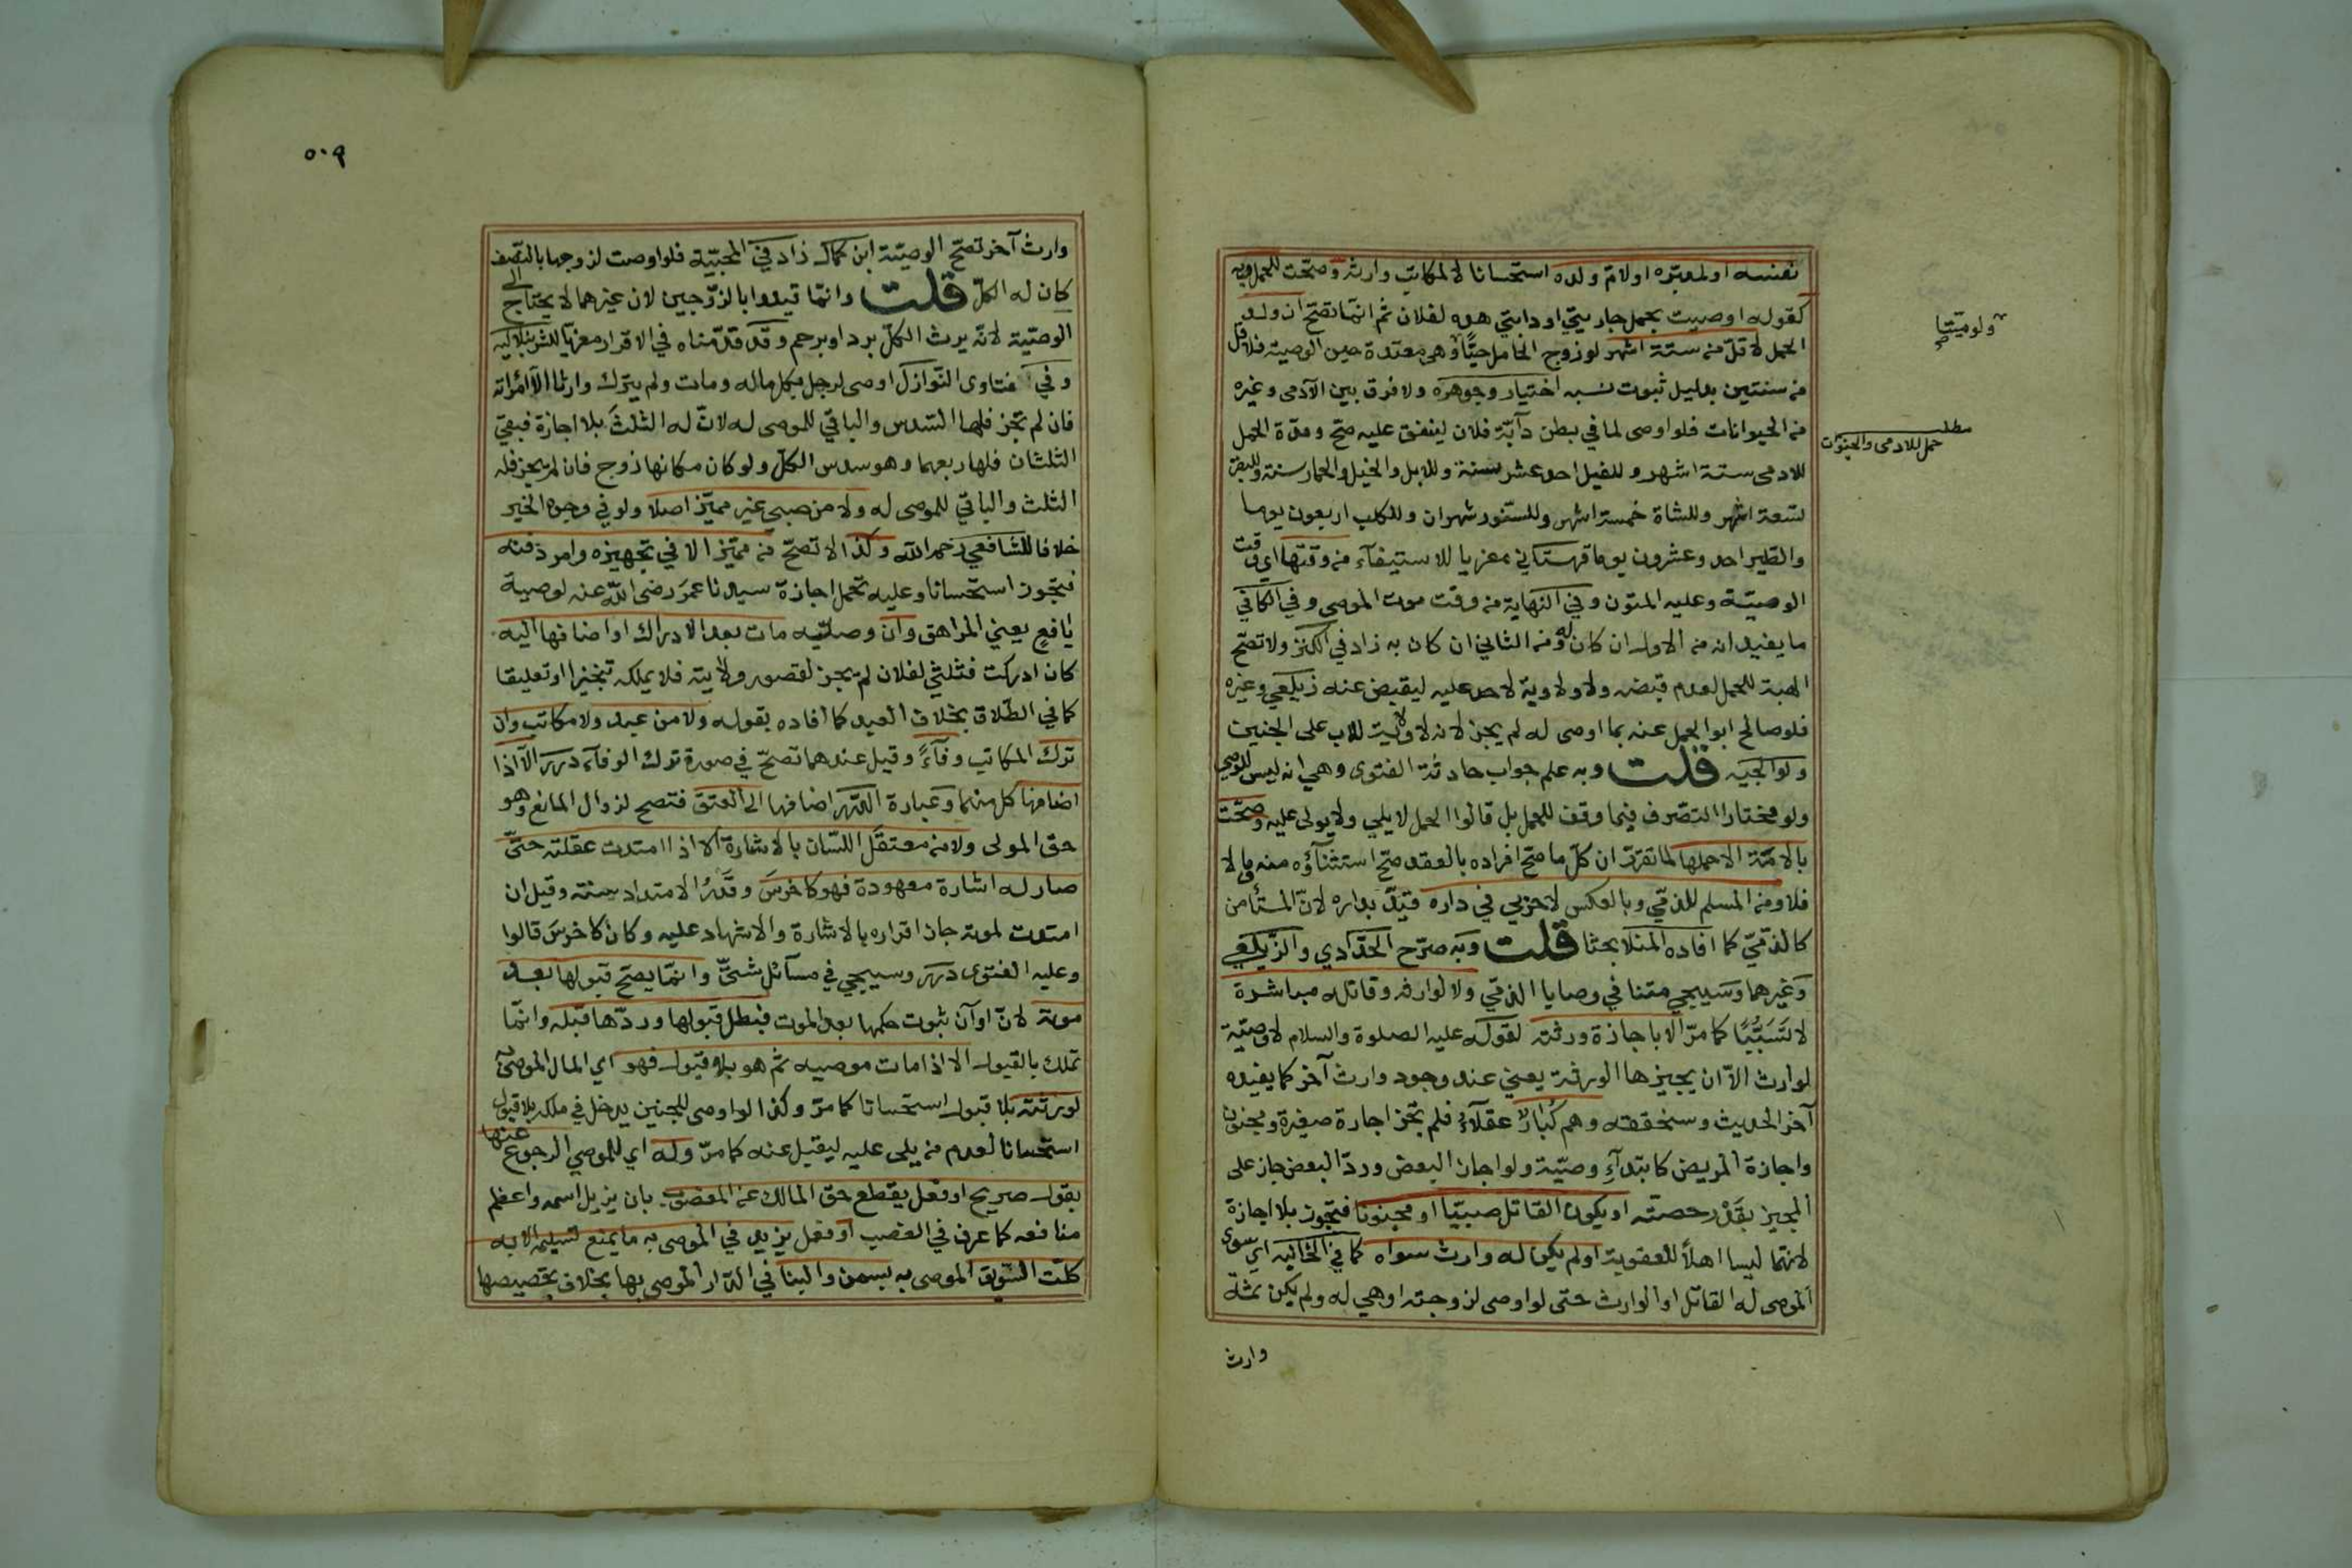 نفسه او لمدبره او لام ولده استحسانا لا لمكاتب وارثه وصحت للحمل وبه
كقوله اوصيت بحمل جاريتي او دابتي هذه لفلان ثم انما تصح ان ولد
الحمل لاقل من ستة اشهر لو زوج الحامل حيا ولو ميتا وهي معتدة حين الوصية فلاقل
من سنتين بدليل ثبوت نسبه اختيار وجوهره ولا فرق بين الآدمي وغيره
من الحيوانات فلو اوصى لما في بطن دآبة فلان لينفق عليه صح ومدة الحمل
مطلب حمل للادمى والحيوان
للادمى ستة اشهر وللفيل احد عشر سنة وللابل والخيل والحمار سنة وللبقر
تسعة اشهر وللشاة خمسة اشهر وللسنور شهران وللكلب اربعون يوما
والطير احد وعشرون يوما قهستاني معزيا للاستيفآء من وقتها اي وقت
الوصية وعليه المتون وفي النهاية من وقت موت الموصى وفي الكافي
ما يفيد انه من الاول ان كان له ومن الثاني ان كان به زاد في الكنز ولا تصح
الهبة للحمل لعدم قبضه ولا ولاوية لاحد عليه ليقبض عنه زيلعي وغيره
فلو صالح ابو الحمل عنه بما اوصى له لم يجز لانه لا ولايت للاب على الجنين
ولوالجيه قلت وبه علم جواب حادثة الفتوى وهي انه ليس للوصي
ولو مختارا التصرف فيما وقف للحمل بل قالوا الحمل لا يلي ولا يولى عليه وصحت
بالامة الا حملها لما تقرر ان كل ما صح افراده بالعقد صح استثنآؤه منه وما لا
فلا ومن المسلم للذمي وبالعكس لا حربي في داره قيد بداره لان المستأمن
كالذمي كما افاده المنلا بحثا قلت وبه صرح الحدادي والزيلعي
وغيرهما وسيجي متنا في وصايا الذمي ولا لوارثه وقاتله مباشرة
لا تسببا كما مر الا باجازة ورثته لقوله عليه الصلوة والسلام لا وصية
لوارث الا ان يجيزها الورثة يعني عند وجود وارث آخر كما يفيده
آخر الحديث وسنحققه وهم كبار عقلآء فلم تجز اجازة صغيرة ومجنون
واجازة المريض كابتدآء وصية ولو اجاز البعض ورد البعض جاز على
المجيز بقدر حصته او يكون القاتل صبيا او مجنونا فتجوز بلا اجازة
لانهما ليسا اهلا للعقوبة او لم يكن له وارث سواه كما في الخانيه اي سوى
الموصى له القاتل او الوارث حتى لو اوصى لزوجته او هي له ولم يكن ثمة
وارث
٥٠٩
وارث آخر تصح الوصية ابن كمال زاد في المحبية فلو اوصت لزوجها بالنصف
كان له الكل قلت وانما قيدوا بالزوجين لان غيرهما لا يحتاج الى
الوصية لانه يرث الكل برد او برحم وقد قدمناه في الاقرار معزيا للشرنبلاليه
وفي فتاوى النوازل اوصى لرجل بكل ماله ومات ولم يترك وارثا الا امرأته
فان لم تجز فلها السدس والباقي للموصى له لان له الثلث بلا اجازة فبقي
الثلثان فلها ربعهما وهو سدس الكل ولو كان مكانها زوج فان لم يجز فله
الثلث والباقي للموصى له ولا من صبي غير مميز اصلا ولو في وجوه الخير
خلافا للشافعي رحمه الله وكذا لا تصح من مميز الا في تجهيزه وامر دفنه
فتجوز استحسانا وعليه تحمل اجازة سيدنا عمر رضى الله عنه لوصية
يافع يعني المراهق وان وصليه مات بعد الادراك او اضافها اليه
كان ادركت فثلثي لفلان لم يجز لقصور ولايته فلا يملكه تنجيزا او تعليقا
كما في الطلاق بخلاف العبد كما افاده بقوله ولا من عبد ولا مكاتب وان
ترك المكاتب وفآء وقيل عندهما تصح في صورة ترك الوفآء درر الا اذا
اضافها كل منهما وعبارة الدرر اضافها الى العتق فتصح لزوال المانع وهو
حق المولى ولا من معتقل اللسان بالاشارة الا اذا امتدت عقلته حتى
صار له اشارة معهودة فهو كاخرس وقدر الامتداد سنة وقيل ان
امتدت لموته جاز اقراره بالاشارة والاشهاد عليه وكان كاخرس قالوا
وعليه الفتوى درر وسيجي في مسآئل شتى وانما يصح قبولها بعد
موته لان اوآن ثبوت حكمها بعد الموت فبطل قبولها وردها قبله وانما
تملك بالقبول الا اذا مات موصيه ثم هو بلا قبول فهو اي المال الموصى به
لورثته بلا قبول استحسانا كما مر وكذا لو اوصى للجنين يدخل في ملكه بلا قبول
استحسانا لعدم من يلى عليه ليقبل عنه كما مر وله اي للموصي الرجوع عنها
بقول صريح او فعل يقطع حق المالك عن المغصوب بان يزيل اسمه واعظم
منافعه كما عرف في الغصب او فعل يزيد في الموصى به ما يمنع تسليمه الا به
كلت السويق الموصى به بسمن والبنا في الدار الموصى بها بخلاف تجصيصها